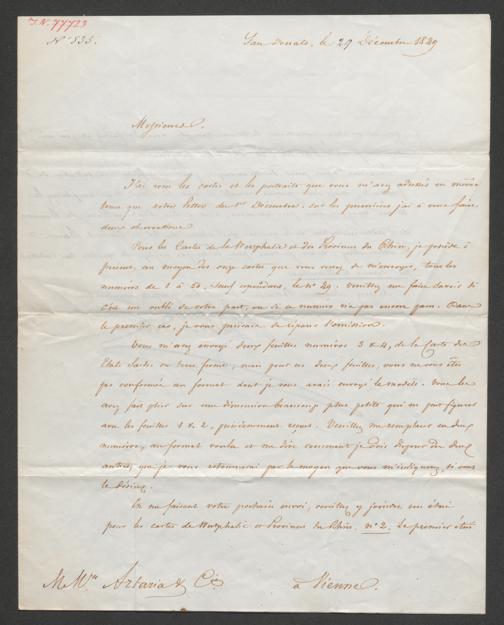 I.N. 77723
N° 535.
San Donato, le 29 Décembre 1849
Messieurs.
J'ai reçu les cartes et les portraits que vous m'avez adressés en même
tems que votre lettre du 1er Décembre. Sur les premières j'ai à vous faire
deux observations
Pour les Cartes de la Westphalie et des Provinces du Rhin, je possède à
présent, au moyen des onze cartes que vous venez de m'envoyer, tous les
numéros de 1 à 50, sauf cependant, le N° 29. Veuillez me faire savoir si
c'est un oubli de votre part, ou si ce numéro n'a pas encore paru. Dans
le premier cas, je vous prierais de réparer l'omission.
Vous m'avez envoyé deux feuilles numéros 3 & 4, de la Carte des
Etats Sardes en terre ferme, mais pour ces deux feuilles, vous ne vous êtes
pas conformés au format dont je vous avais envoyé le modèle. Vous les
avez fait plier sur une dimension beaucoup plus petite qui ne peut figurer
avec les feuilles 1 & 2, précédemment reçues. Veuillez me remplacer ces deux
numéros, au format voulu et me dire comment je dois disposer des deux
autres, que je vous retournerai par le moyen que vous m'indiquerez, si vous
le désirez.
En me faisant votre prochain envoi, veuillez y joindre un étui
pour les cartes de Westphalie et Provinces du Rhin, n° 2. Le premier étui
M Mrs Artaria & Cie à Vienne.